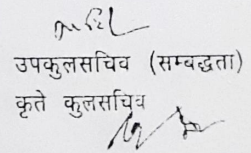 उपकुलसचिव (सम्बद्धता)
कृते कुलसचिव